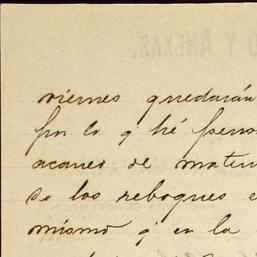 Y ANEXAS.
viernes quedarán
por lo q' hé pens
acaneo de mate
de los reboques e
mismo q' en la